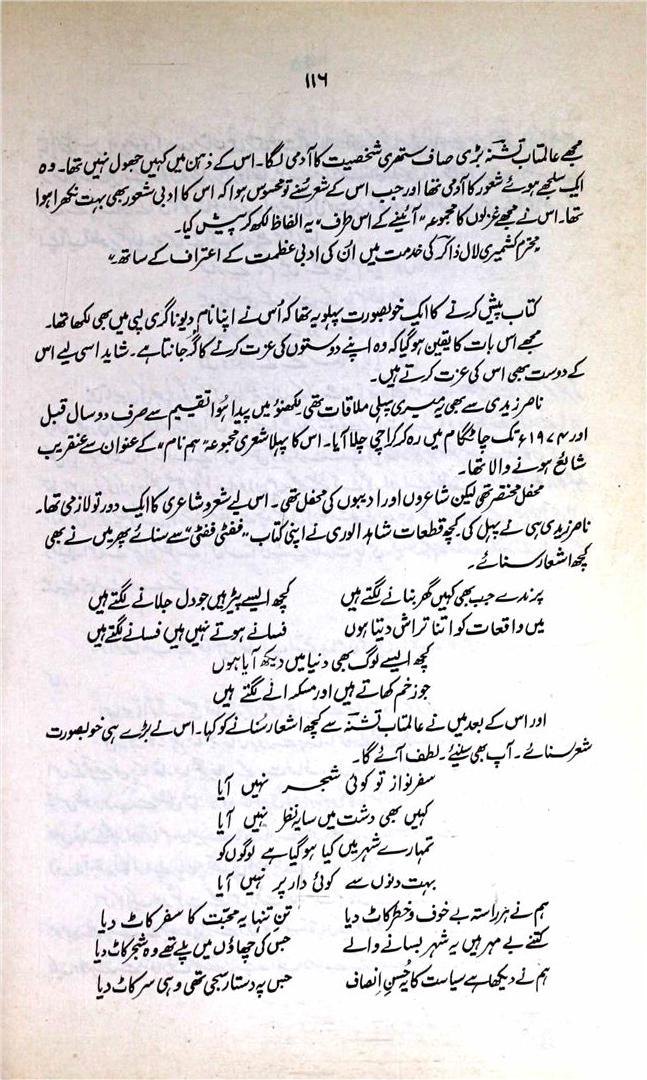 ۱۱۶
مجھے عالمتاب تشنہ بڑی صاف ستھری شخصیت کا آدمی لگا۔ اس کے ذہن میں کہیں جھول نہیں تھا۔ وہ
ایک سلجھے ہوئے شعور کا آدمی تھا اور جب اس کے شعر سُنے تو محسوس ہوا کہ اس کا ادبی شعور بھی بہت نکھرا ہوا
تھا۔ اس نے مجھے غزلوں کا مجموعہ "آئینے کے اس طرف" یہ الفاظ لکھ کر پیش کیا۔
محترم کشمیری لال ذاکر کی خدمت میں اُن کی ادبی عظمت کے اعتراف کے ساتھ"
کتاب پیش کرنے کا ایک خوبصورت پہلو یہ تھا کہ اُس نے اپنا نام دیوناگری لپی میں بھی لکھا تھا۔
مجھے اس بات کا یقین ہو گیا کہ وہ اپنے دوستوں کی عزت کرنے کا گُر جانتا ہے۔ شاید اسی لیے اس
کے دوست بھی اس کی عزت کرتے ہیں۔
ناصر زیدی سے بھی یہ میری پہلی ملاقات تھی۔ لکھنؤ میں پیدا ہُوا تقسیم سے صرف دو سال قبل
اور ۱۹۷۴ء تک چاٹگام میں رہ کر کراچی چلا آیا۔ اس کا پہلا شعری مجموعہ "ہم نام" کے عنوان سے عنقریب
شائع ہونے والا تھا۔
محفل مختصر تھی لیکن شاعروں اور ادیبوں کی محفل تھی۔ اس لیے شعر و شاعری کا ایک دور تو لازمی تھا۔
ناصر زیدی ہی نے پہل کی۔ کچھ قطعات شاہد الوری نے اپنی کتاب "ففٹی ففٹی" سے سنائے پھر میں نے بھی
کچھ اشعار سنائے۔
پرندے جب بھی کہیں گھر بنانے لگتے ہیں کچھ ایسے پیڑ ہیں جو دل جلانے لگتے ہیں
میں واقعات کو اتنا تراش دیتا ہوں فسانے ہوتے نہیں ہیں فسانے لگتے ہیں
کچھ ایسے لوگ بھی دنیا میں دیکھ آیا ہوں
جو زخم کھاتے ہیں اور مسکرانے لگتے ہیں
اور اس کے بعد میں نے عالمتاب تشنہ سے کچھ اشعار سُنانے کو کہا۔ اس نے بڑے ہی خوبصورت
شعر سنائے۔ آپ بھی سنیئے۔ لطف آئے گا۔
سفر نواز تو کوئی شجر نہیں آیا
کہیں بھی دشت میں سایہ نظر نہیں آیا
تمہارے شہر میں کیا ہو گیا ہے لوگوں کو
بہت دنوں سے کوئی دار پر نہیں آیا
ہم نے ہر راستہ بے خوف و خطر کاٹ دیا تنِ تنہا یہ محبّت کا سفر کاٹ دیا
کتنے بے مہر ہیں یہ شہر بسانے والے جس کی چھاؤں میں پلے تھے وہ شجر کاٹ دیا
ہم نے دیکھا ہے سیاست کا یہ حُسنِ انصاف جس پہ دستار سجی تھی وہی سر کاٹ دیا